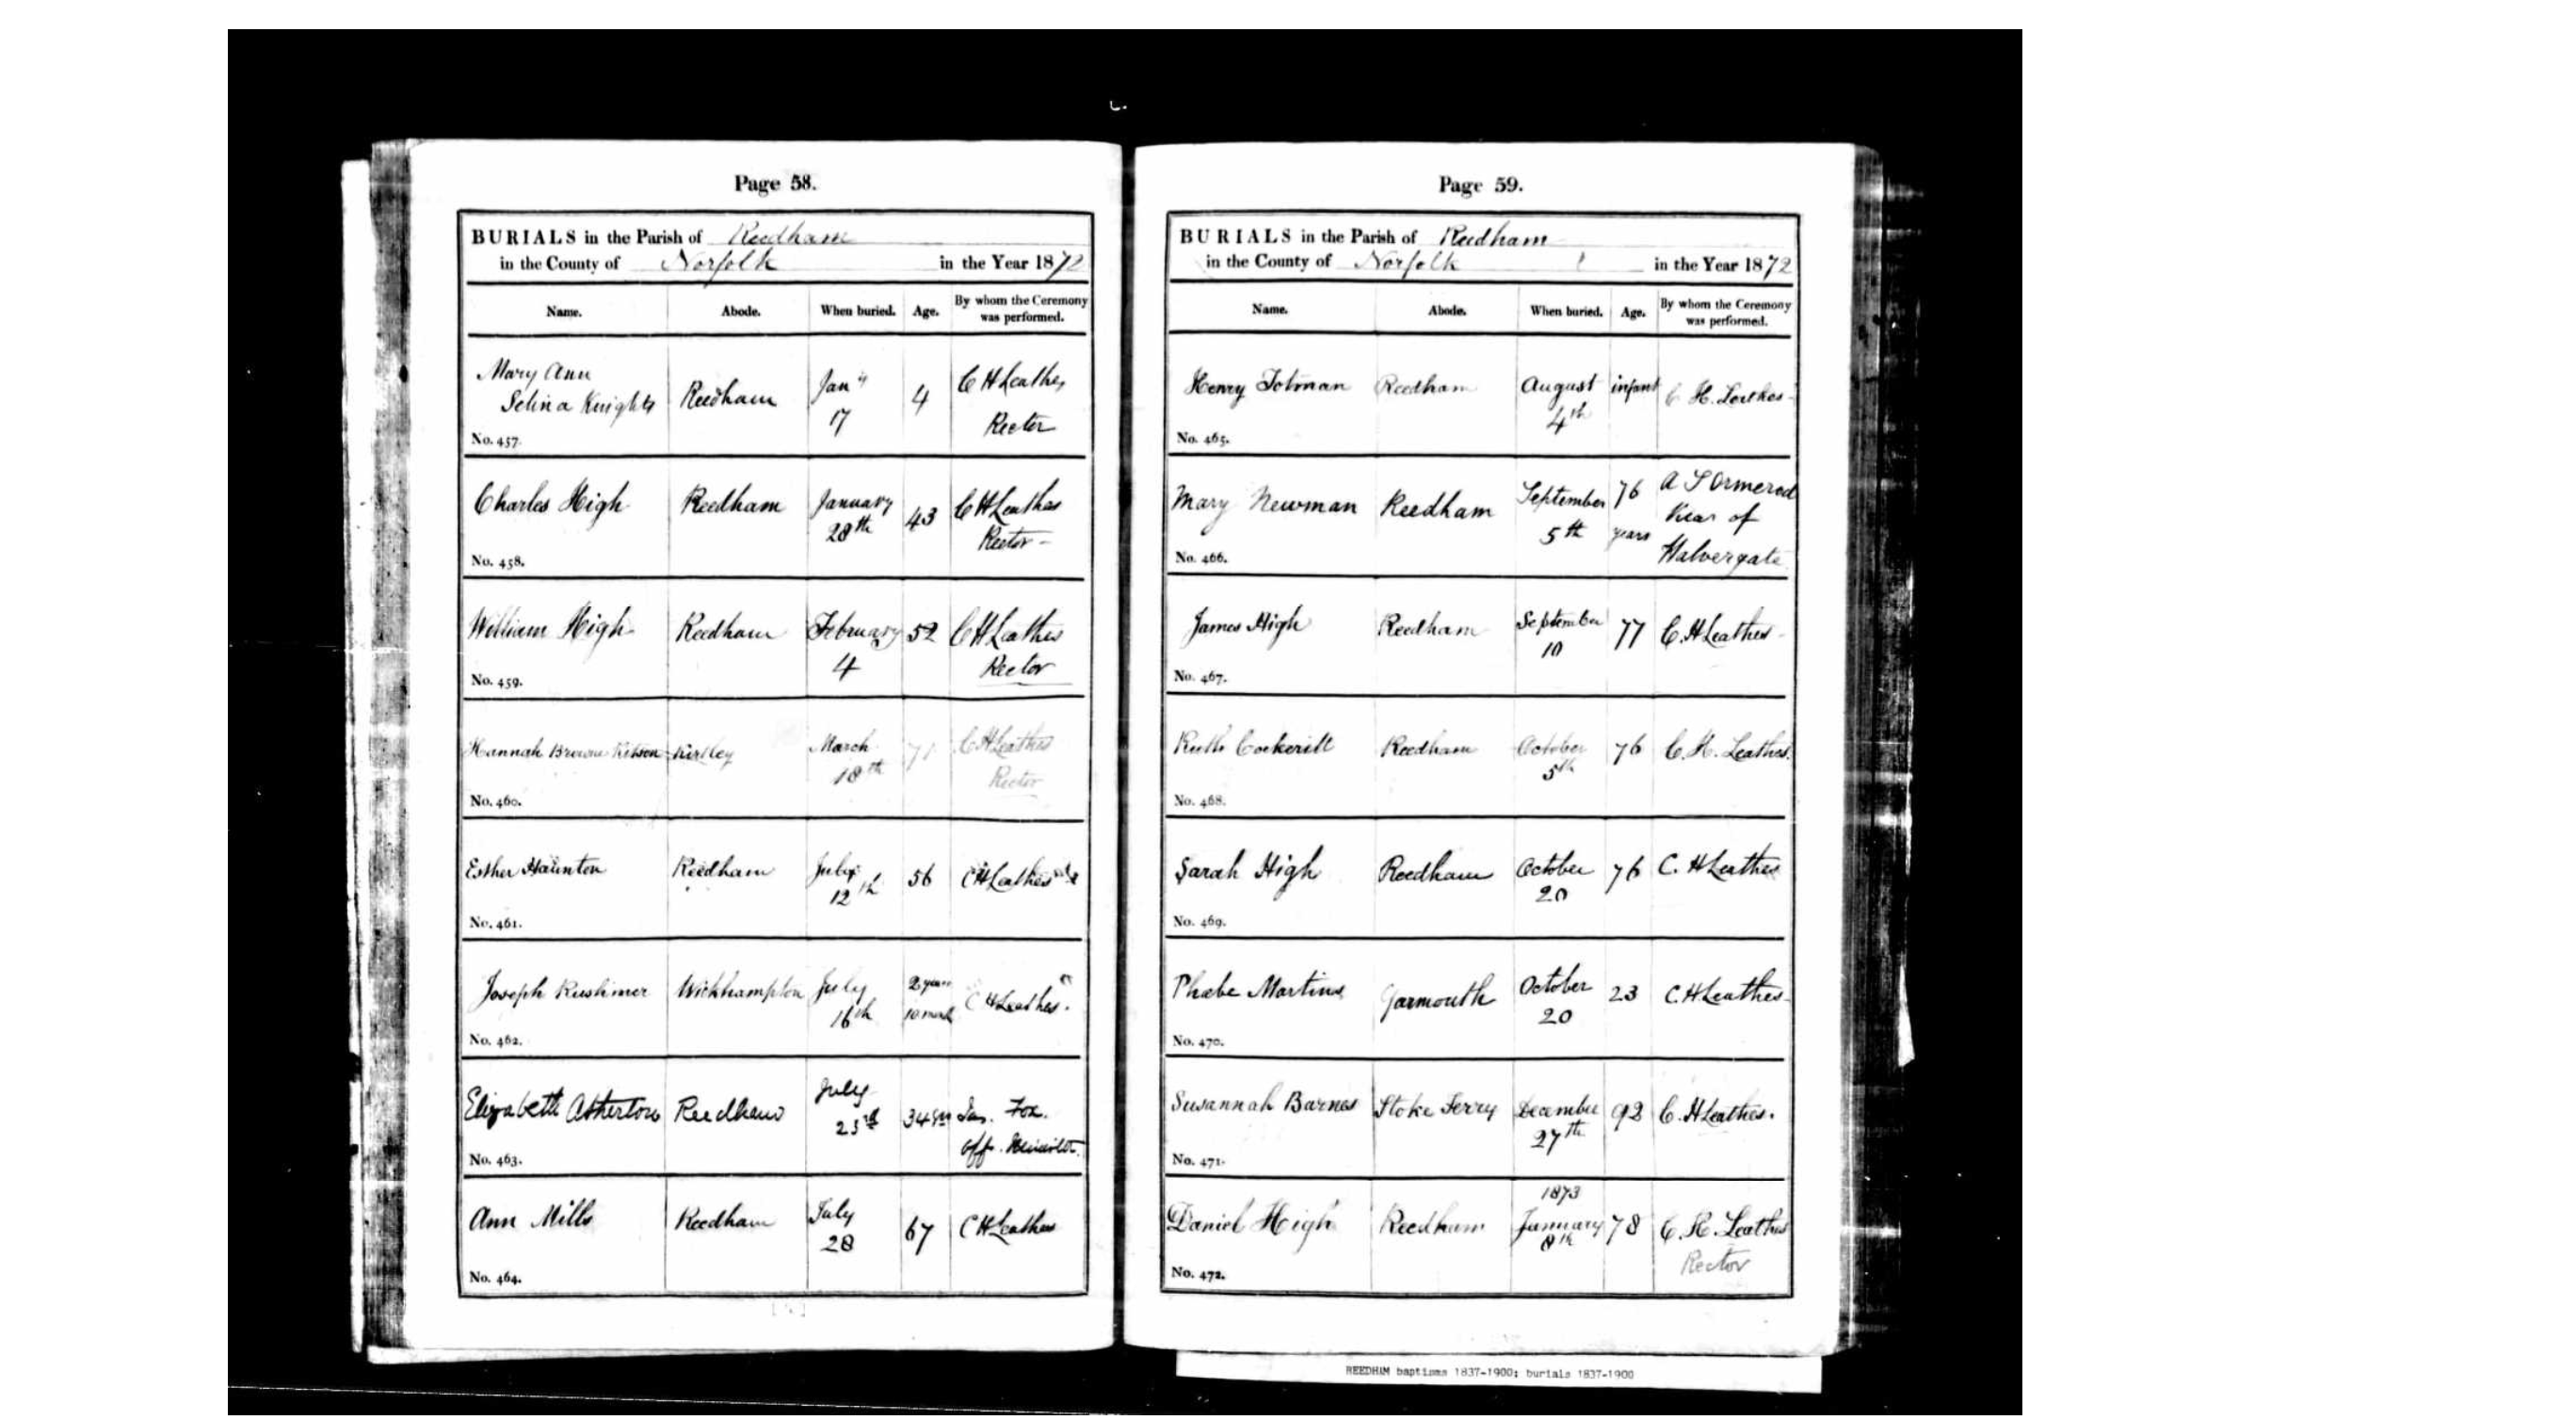 Page 58.
BURIALS in the Parish of Reedham
in the County of Norfolk in the Year 1872
Name. Abode. When buried. Age. By whom the Ceremony was performed.
Mary Ann
Selina Knights Reedham Jany 17 4 C H Leathes Rector
No. 457.
Charles High Reedham January 28th 43 C H Leathes Rector
No. 458.
William High Reedham February 4 52 C H Leathes Rector
No. 459.
Hannah Browne Kitson Kirtley March 18th 71 C H Leathes Rector
No. 460.
Esther Haunton Reedham July 12th 56 C H Leathes
No. 461.
Joseph Rushmer Wickhampton July 16th 2 years 10 month C H Leathes.
No. 462.
Elizabeth Atherton Reedham July 23rd 34 yrs Jas. Fox. Off. Minister.
No. 463.
Ann Mills Reedham July 28 67 C H Leathes
No. 464.
Page 59.
BURIALS in the Parish of Reedham
in the County of Norfolk in the Year 1872
Name. Abode. When buried. Age. By whom the Ceremony was performed.
Henry Totman Reedham August 4th infant C H. Leathes
No. 465.
Mary Newman Reedham September 5th 76 years A S Ormerod Vicar of Halvergate
No. 466.
James High Reedham September 10 77 C. H Leathes
No. 467.
Ruth Cockerill Reedham October 5th 76 C. H. Leathes.
No. 468.
Sarah High Reedham October 20 76 C. H Leathes
No. 469.
Phœbe Martins Yarmouth October 20 23 C. H Leathes
No. 470.
Susannah Barnes Stoke Ferry December 27th 92 C. H Leathes.
No. 471.
Daniel High Reedham 1873 January 8th 78 C. H. Leathes Rector
No. 472.
REEDHAM baptisms 1837-1900; burials 1837-1900